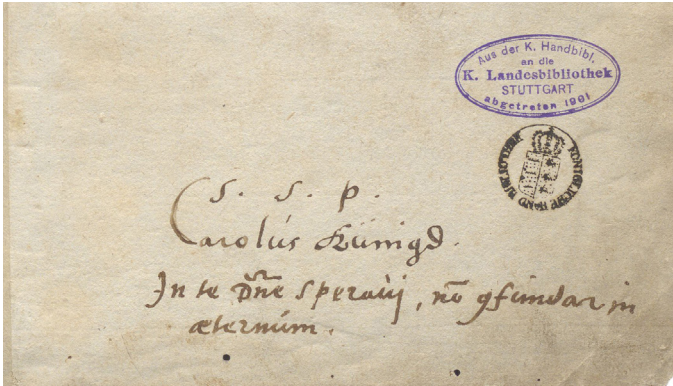 Aus der K. Handbibl.
an die
K. Landesbibliothek
STUTTGART
abgetreten 1901
KÖNIGLICHE HAND BIBLIOTHEK
S. S. P.
Carolus Künigs.
In te Dñe speravij, nō ꝯfundar in
æternúm.